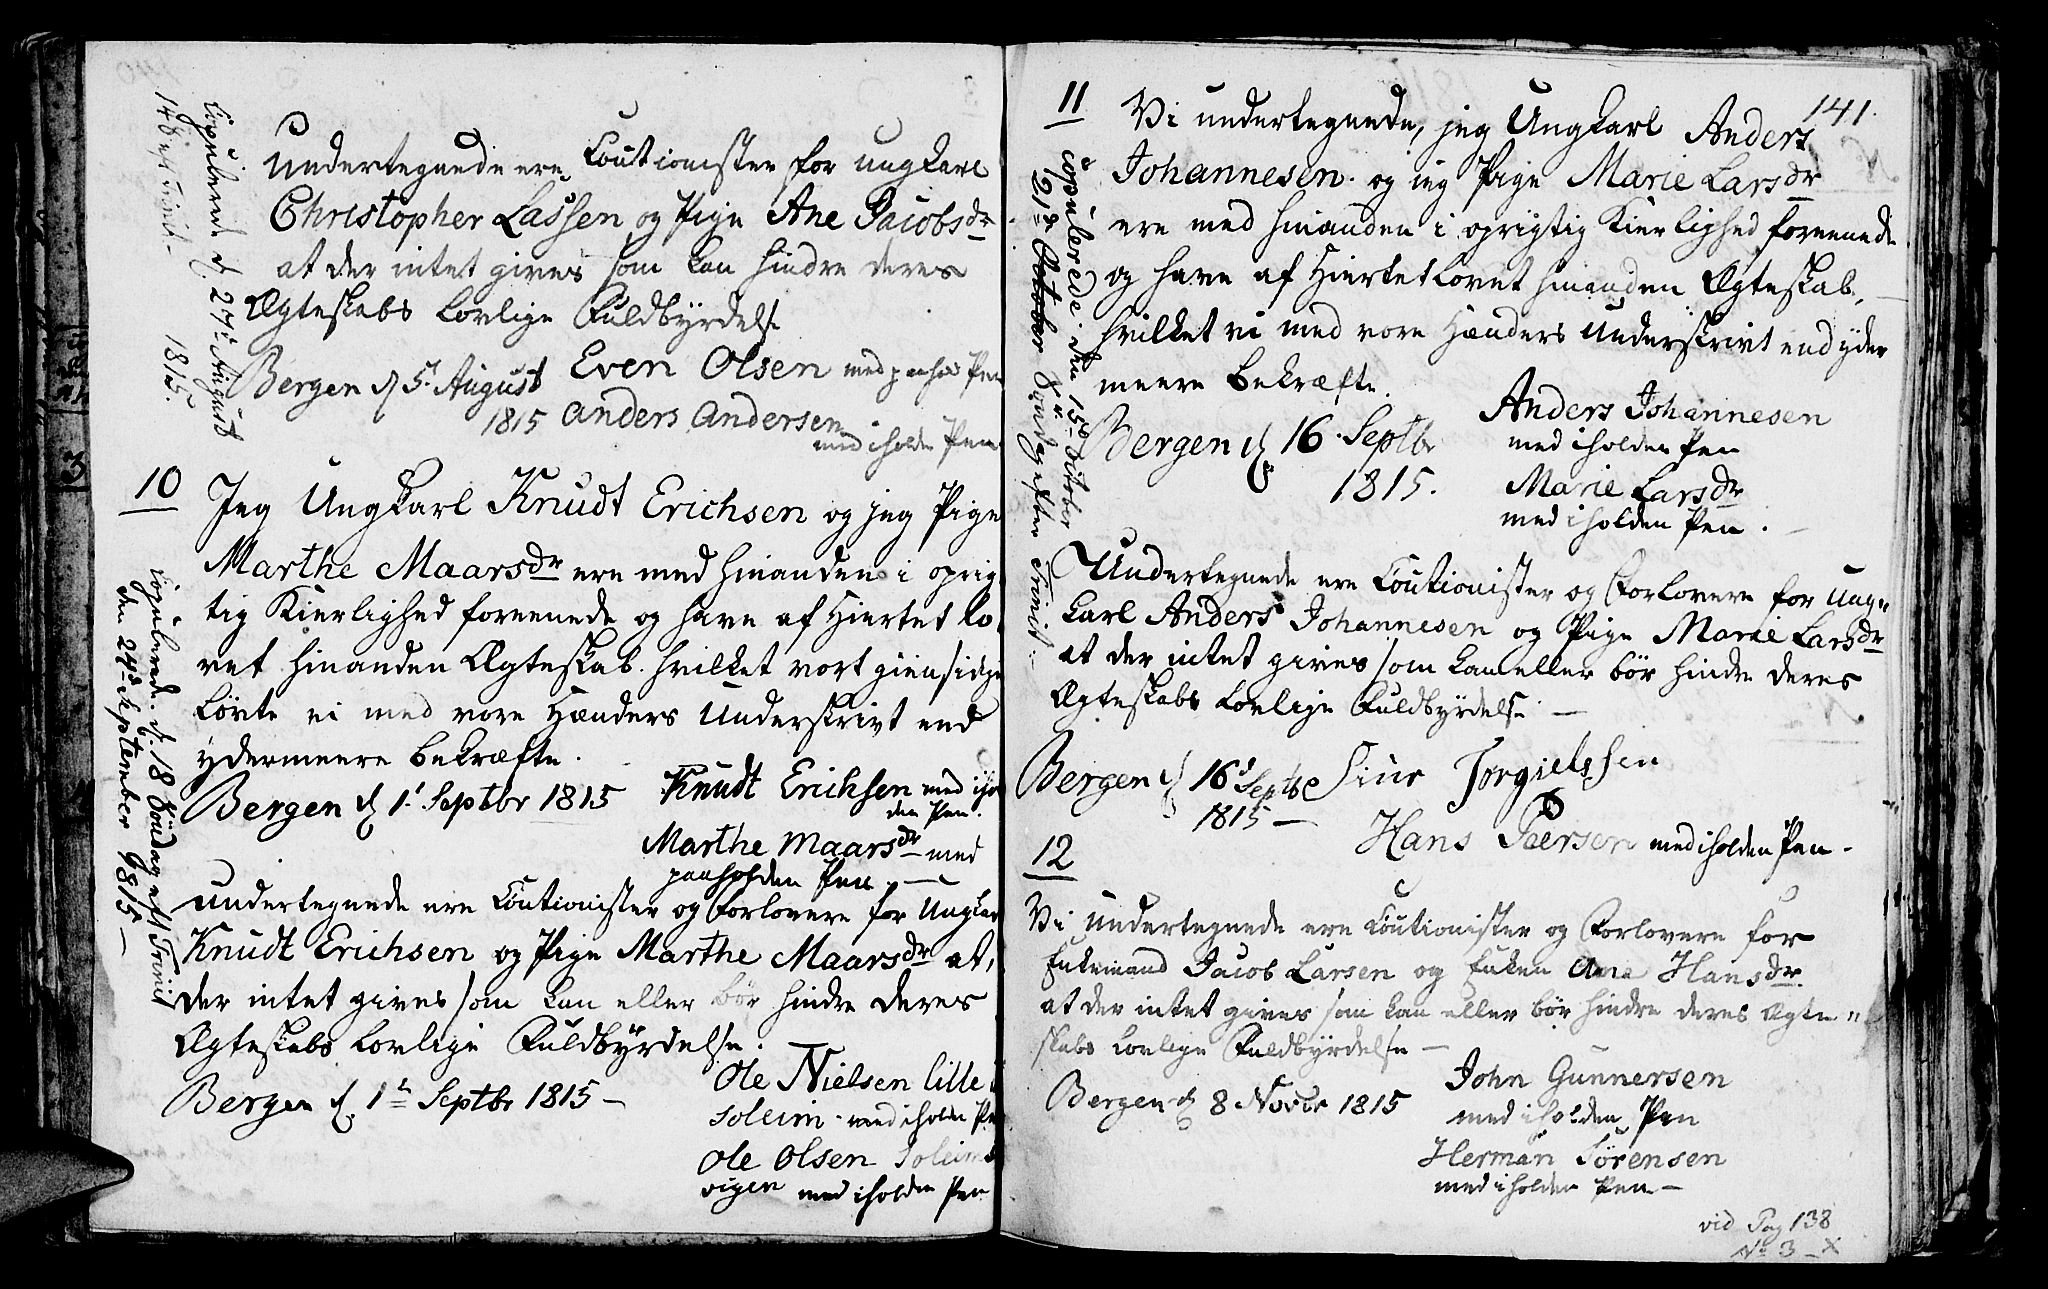 Copulerede d. 27de August
14 S. eft. Trinit.
1815.
Undertegnede ere Coutionister for ungkarl
Christopher Lassen og Pige Ane Jacobsdr
at der intet gives som kan hindre deres
Ægteskabs Lovlige Fuldbyrdelse
Bergen d 5t August Even Olsen med paahol Pen
1815 Anders Andersen
med iholden Pen
10
Jeg UngKarl Knudt Erichsen og jeg Pige
Marthe Maarsdr ere med hinanden i oprig
tig Kierlighed foreenede og have af Hiertet lo
vet hinanden Ægteskab. hvilket vort giensidge
Løvte vi med vore Hænders Underskrivt end
ydermeere bekræfte.
Bergen d 1t Septbr 1815 Knudt Erichsen med ihol
den Pen.
Marthe Maarsdr med
paaholden Pen.
Copulerede d. 18 Søndag eft Trinit
den 24de September 1815 —
undertegnede ere Coutionister og Forlovere for Ungkar
Knudt Erichsen og Pige Marthe Maarsdr at,
der intet gives som kan eller bør hindre deres
Ægteskabs Lovlige Fuldbyrdelse.
Bergen d. 1t Septbr 1815 — Ole Nielsen lille
soleim - med iholde Pe
Ole Olsen Soleims
vigen med iholden Pen
141.
11
Vi undertegnede, jeg UngKarl Anders
Johannesen og jeg Pige Marie Larsdr
ere med hinanden i oprigtig Kierlighed foreenede
og have af Hiertet Lovet hinanden Ægteskab, —
hvilket vi med vore Hænders Underskrivt end yder
meere bekræfte.
Bergen d 16 Septbr Anders Johannesen
1815. med iholden Pen
Marie Larsdr
med iholden Pen. —
Copulerede. den 15de Octobr
21de October Søndag efter Trinit:
Undertegnede ere Coutionister og Forlovere for Ung"
Karl Anders Johannesen og Pige Marie Larsdr
at der intet gives som kan eller bør hindre deres
Ægteskabs Lovlige Fuldbyrdelse —
Bergen d 16d Septbr Siur Jørgielssen
1815 — Hans Peersen med iholden Pen -
12
Vi undertegnede ere Coutionister og Forlovere for
Enkemand Jacob Larsen og Enken Ane Hansdr.
at der intet gives som kan eller bør hindre deres Ægte"
skabs Lovlige Fuldbyrdelse —
Bergen d 8 Novbr 1815 John Gunnersen
med iholden Pen
Herman Sørensen
med iholden Pen —
vid Pag 138
No 3 - x